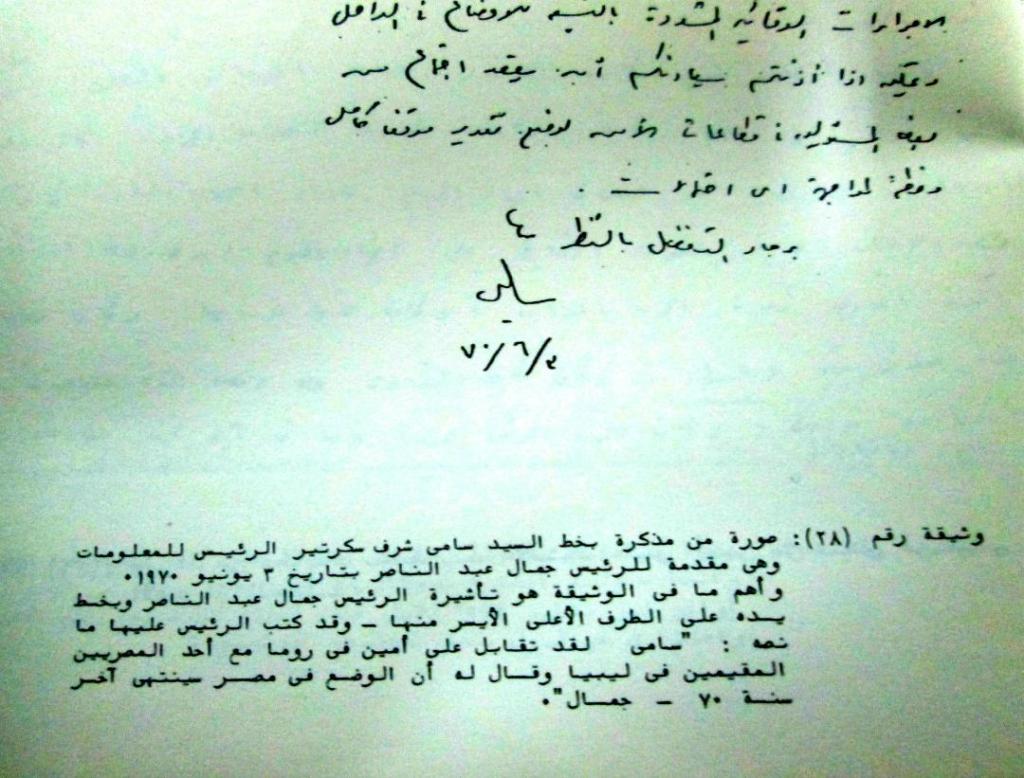 الاجراءات الوقائية المشددة بالنسبة للاوضاع في الداخل
وعليه اذا أذنتم سيادتكم أن يعقد اجتماع من
المسئولين في قطاعات الأمن لوضع تقدير موقف كامل
وخطة لمواجهة اى احتمالات .
برجاء التفضل بالنظر
سامى
٣/٦/٧٠
وثيقة رقم (٢٨): صورة من مذكرة بخط السيد سامى شرف سكرتير الرئيس للمعلومات
وهى مقدمة للرئيس جمال عبد الناصر بتاريخ ٣ يونيو ١٩٧٠٠
وأهم ما فى الوثيقة هو تأشيرة الرئيس جمال عبد الناصر وبخط
يده على الطرف الأعلى الأيسر منها ــ وقد كتب الرئيس عليها ما
نصه : "سامى لقد تقابل على أمين فى روما مع أحد المصريين
المقيمين فى ليبيا وقال له أن الوضع فى مصر سينتهى آخر
سنة ٧٠ ــ جمال"٠